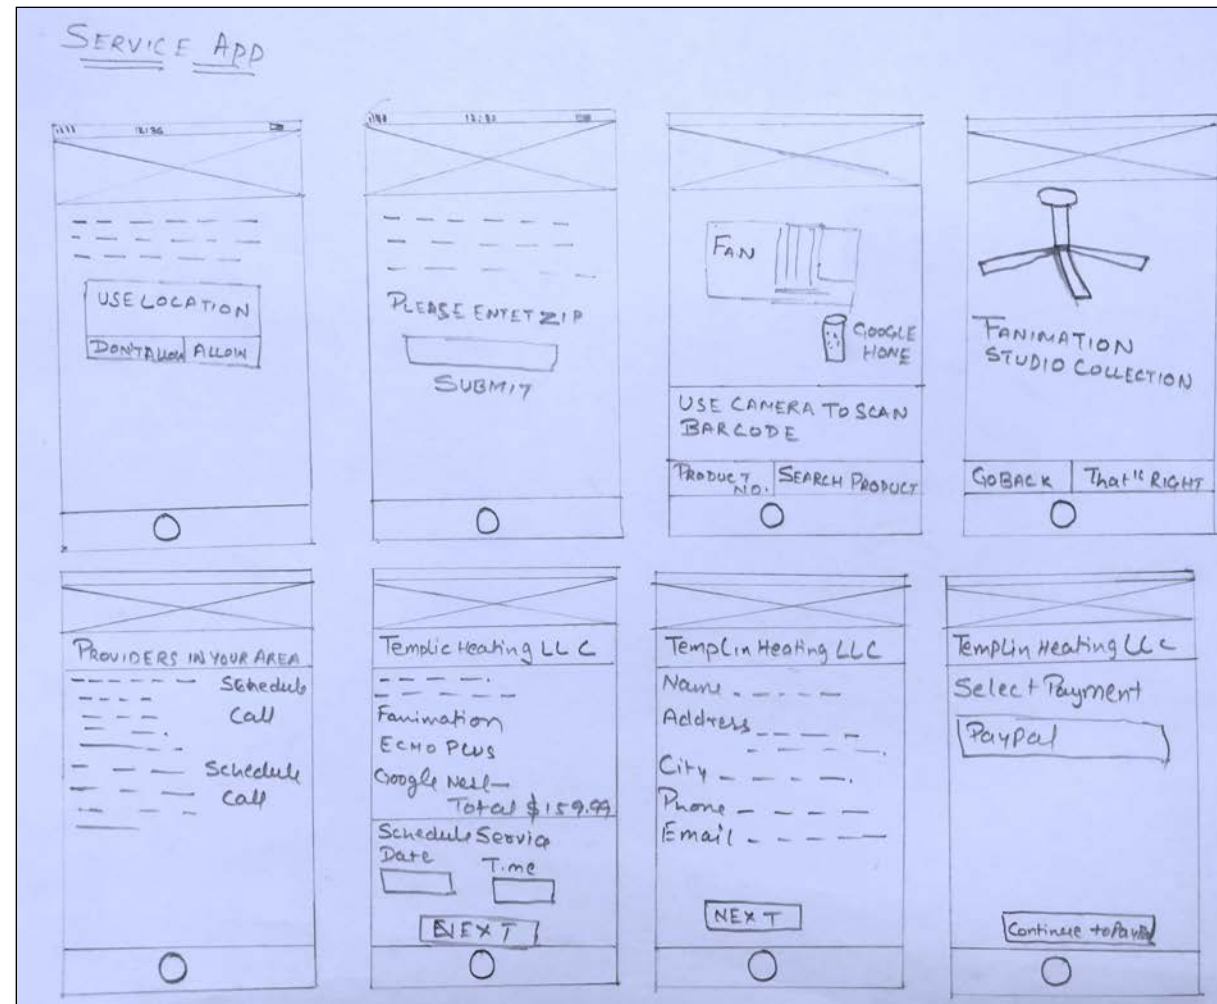 SERVICE APP
12:30
USE LOCATION
DON'T ALLOW ALLOW
PLEASE ENTET ZIP
SUBMIT
FAN
GOOGLE
HOME
USE CAMERA TO SCAN
BARCODE
PRODUCT
NO.
SEARCH PRODUCT
FANIMATION
STUDIO COLLECTION
GO BACK
That" RIGHT
PROVIDERS IN YOUR AREA
Schedule
Call
Schedule
Call
Templic Heating LLC
Fanimation
ECHO PLUS
Google Nest
Total $159.99
Schedule Service
Date
Time
NEXT
Templin Heating LLC
Name
Address
City
Phone
Email
NEXT
Templin Heating LLC
Select Payment
PayPal
Continue to PayPal